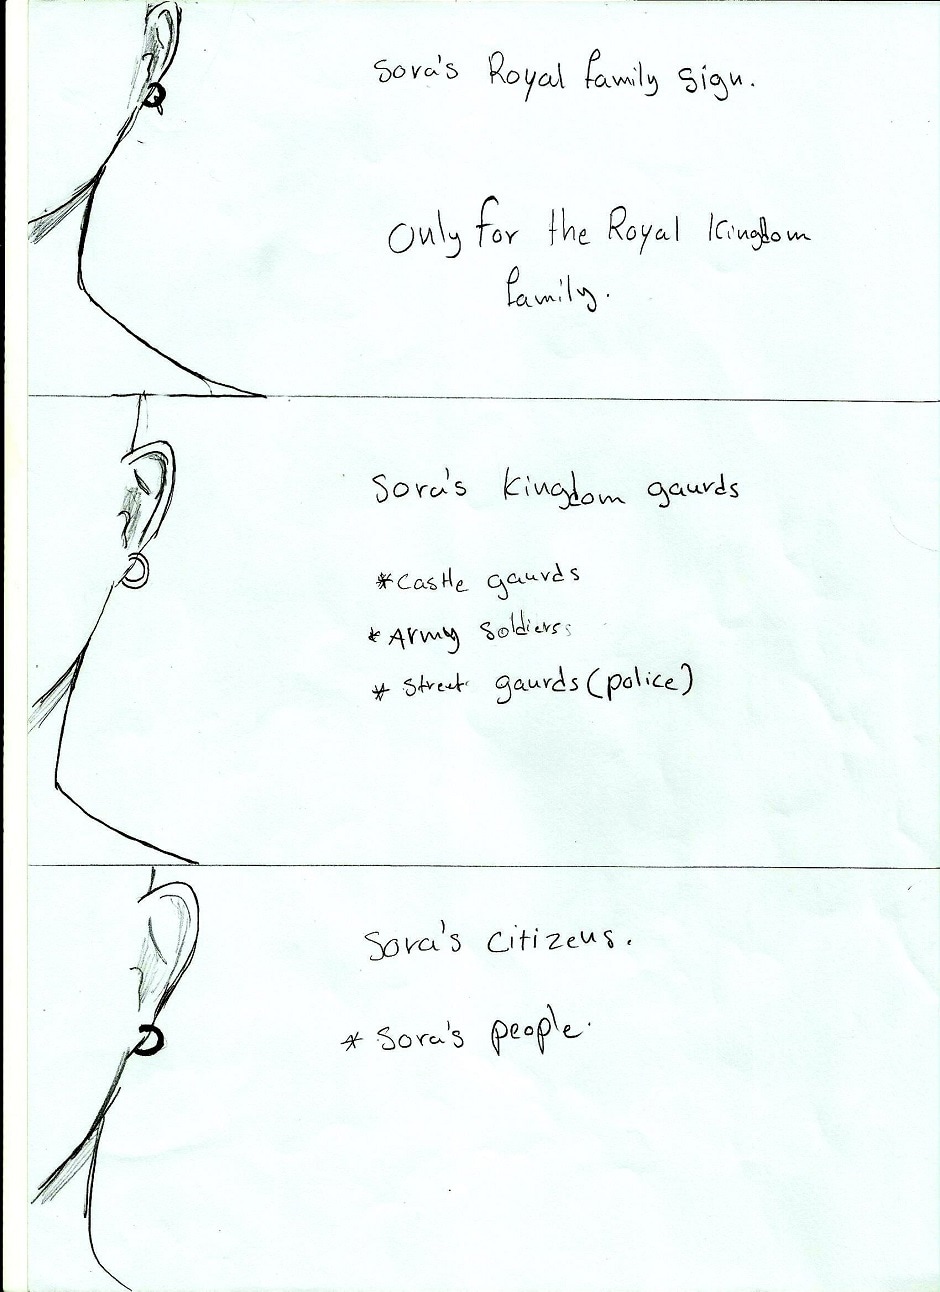 Sora's Royal family sign.
Only for the Royal Kingdom
family.
Sora's Kingdom gaurds
*Castle gaurds
*Army soldiers
*Street gaurds (police)
Sora's citizens.
*Sora's people.